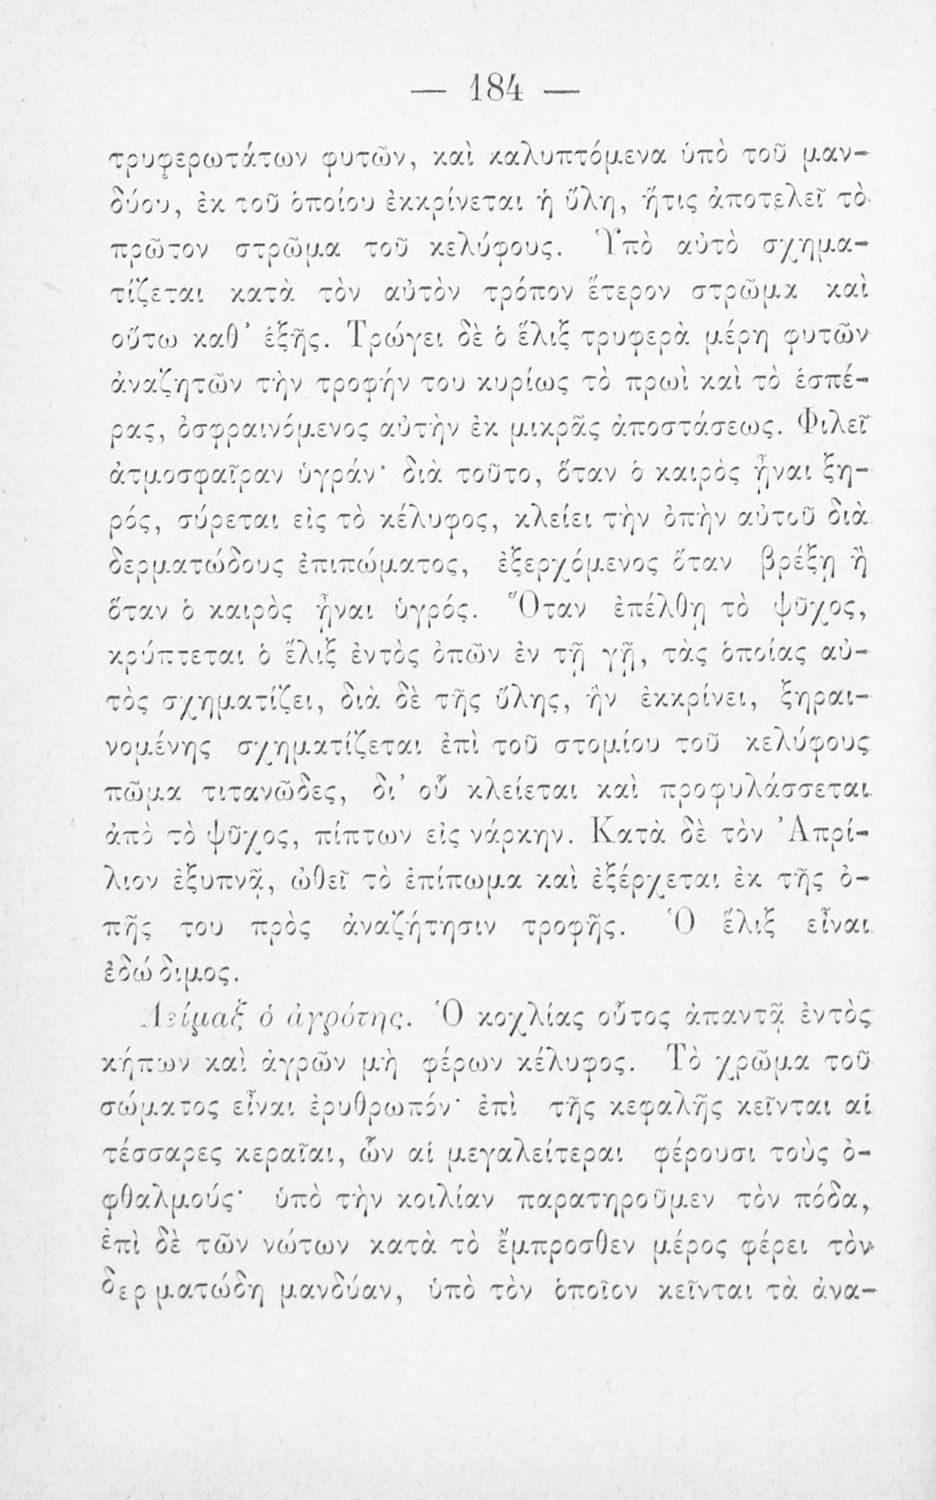 — 184 —
τρυφερωτάτων φυτῶν, καὶ καλυπτόμενα ὑπὸ τοῦ μαν-
δύου, ἐκ τοῦ ὁποίου ἐκκρίνεται ἡ ὕλη, ἥτις ἀποτελεῖ τὸ
πρῶτον στρῶμα τοῦ κελύφους. Ὑπὸ αὐτὸ σχημα-
τίζεται κατὰ τὸν αὐτὸν τρόπον ἕτερον στρῶμα καὶ
οὕτω καθ' ἑξῆς. Τρώγει δὲ ὁ ἕλιξ τρυφερὰ μέρη φυτῶν
ἀναζητῶν τὴν τροφήν του κυρίως τὸ πρωὶ καὶ τὸ ἑσπέ-
ρας, ὀσφραινόμενος αὐτὴν ἐκ μικρᾶς ἀποστάσεως. Φιλεῖ
ἀτμοσφαῖραν ὑγράν· διὰ τοῦτο, ὅταν ὁ καιρὸς ᾖναι ξη-
ρός, σύρεται εἰς τὸ κέλυφος, κλείει τὴν ὀπὴν αὐτοῦ διὰ
δερματώδους ἐπιπώματος, ἐξερχόμενος ὅταν βρέξῃ ἢ
ὅταν ὁ καιρὸς ᾖναι ὑγρός. Ὅταν ἐπέλθῃ τὸ ψῦχος,
κρύπτεται ὁ ἕλιξ ἐντὸς ὀπῶν ἐν τῇ γῇ, τὰς ὁποίας αὐ-
τὸς σχηματίζει, διὰ δὲ τῆς ὕλης, ἣν ἐκκρίνει, ξηραι-
νομένης σχηματίζεται ἐπὶ τοῦ στομίου τοῦ κελύφους
πῶμα τιτανῶδες, δι' οὗ κλείεται καὶ προφυλάσσεται
ἀπὸ τὸ ψῦχος, πίπτων εἰς νάρκην. Κατὰ δὲ τὸν Ἀπρί-
λιον ἐξυπνᾷ, ὠθεῖ τὸ ἐπίπωμα καὶ ἐξέρχεται ἐκ τῆς ὀ-
πῆς του πρὸς ἀναζήτησιν τροφῆς. Ὁ ἕλιξ εἶναι
ἐδώδιμος.
Λείμαξ ὁ ἀγρότης. Ὁ κοχλίας οὗτος ἀπαντᾷ ἐντὸς
κήπων καὶ ἀγρῶν μὴ φέρων κέλυφος. Τὸ χρῶμα τοῦ
σώματος εἶναι ἐρυθρωπόν· ἐπὶ τῆς κεφαλῆς κεῖνται αἱ
τέσσαρες κεραῖαι, ὧν αἱ μεγαλείτεραι φέρουσι τοὺς ὀ-
φθαλμούς· ὑπὸ τὴν κοιλίαν παρατηροῦμεν τὸν πόδα,
ἐπὶ δὲ τῶν νώτων κατὰ τὸ ἔμπροσθεν μέρος φέρει τὸν
δερματώδη μανδύαν, ὑπὸ τὸν ὁποῖον κεῖνται τὰ ἀνα-